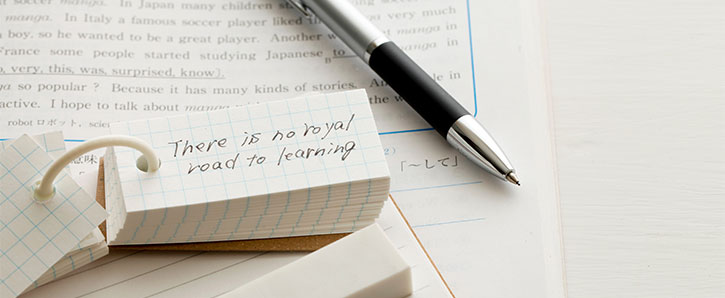 soccer manga. In Japan many children
manga. In Italy a famous soccer player liked very much
boy. so he wanted to be a great player. Another manga in
France some people started studying Japanese to
very, this, was, surprised, know].
so popular ? Because it has many kinds of stories. people in
active. I hope to talk about manga the
robot ロボット, scie
意味
There is no royal
road to learning
「～して」